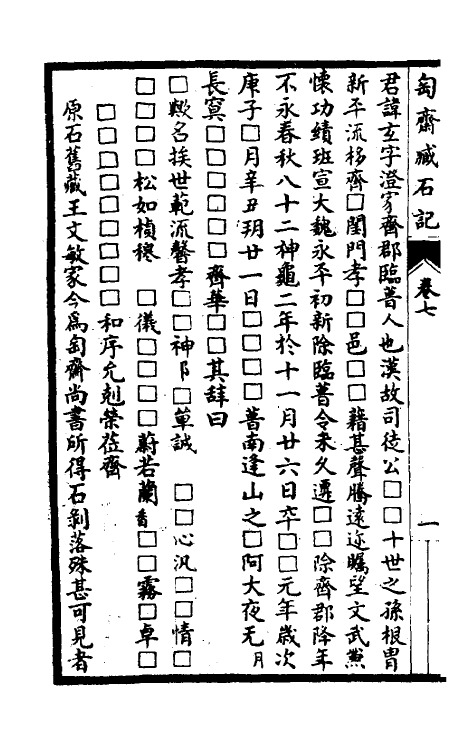 匋齋臧石記 卷七 一
君諱玄字澄字齊郡臨菑人也漢故司徒公□□十世之孫根胄
新平流移齊□閨門孝□□邑□□籍甚聲騰遠迩矚望文武黨
懷功績班宣大魏永平初新除臨菑令未久遷□□除齊郡降年
不永春秋八十二神龜二年於十一月廿六日卒□□元年歲次
庚子□月辛丑玥廿一日□□□□菑南逢山之□阿大夜无月
長㝠□□□□□□齊華□□其辞曰
□歟名挨世範流馨孝□□神阝□單誠 □□心汎□□情□
□□□□松如楨穗 □儀□□□□蔚若蘭香□□霧□卓□
□□□□□□□□和序允剋榮莅齊
原石舊藏王文敏家今爲匋齋尚書所得石剝落殊甚可見者